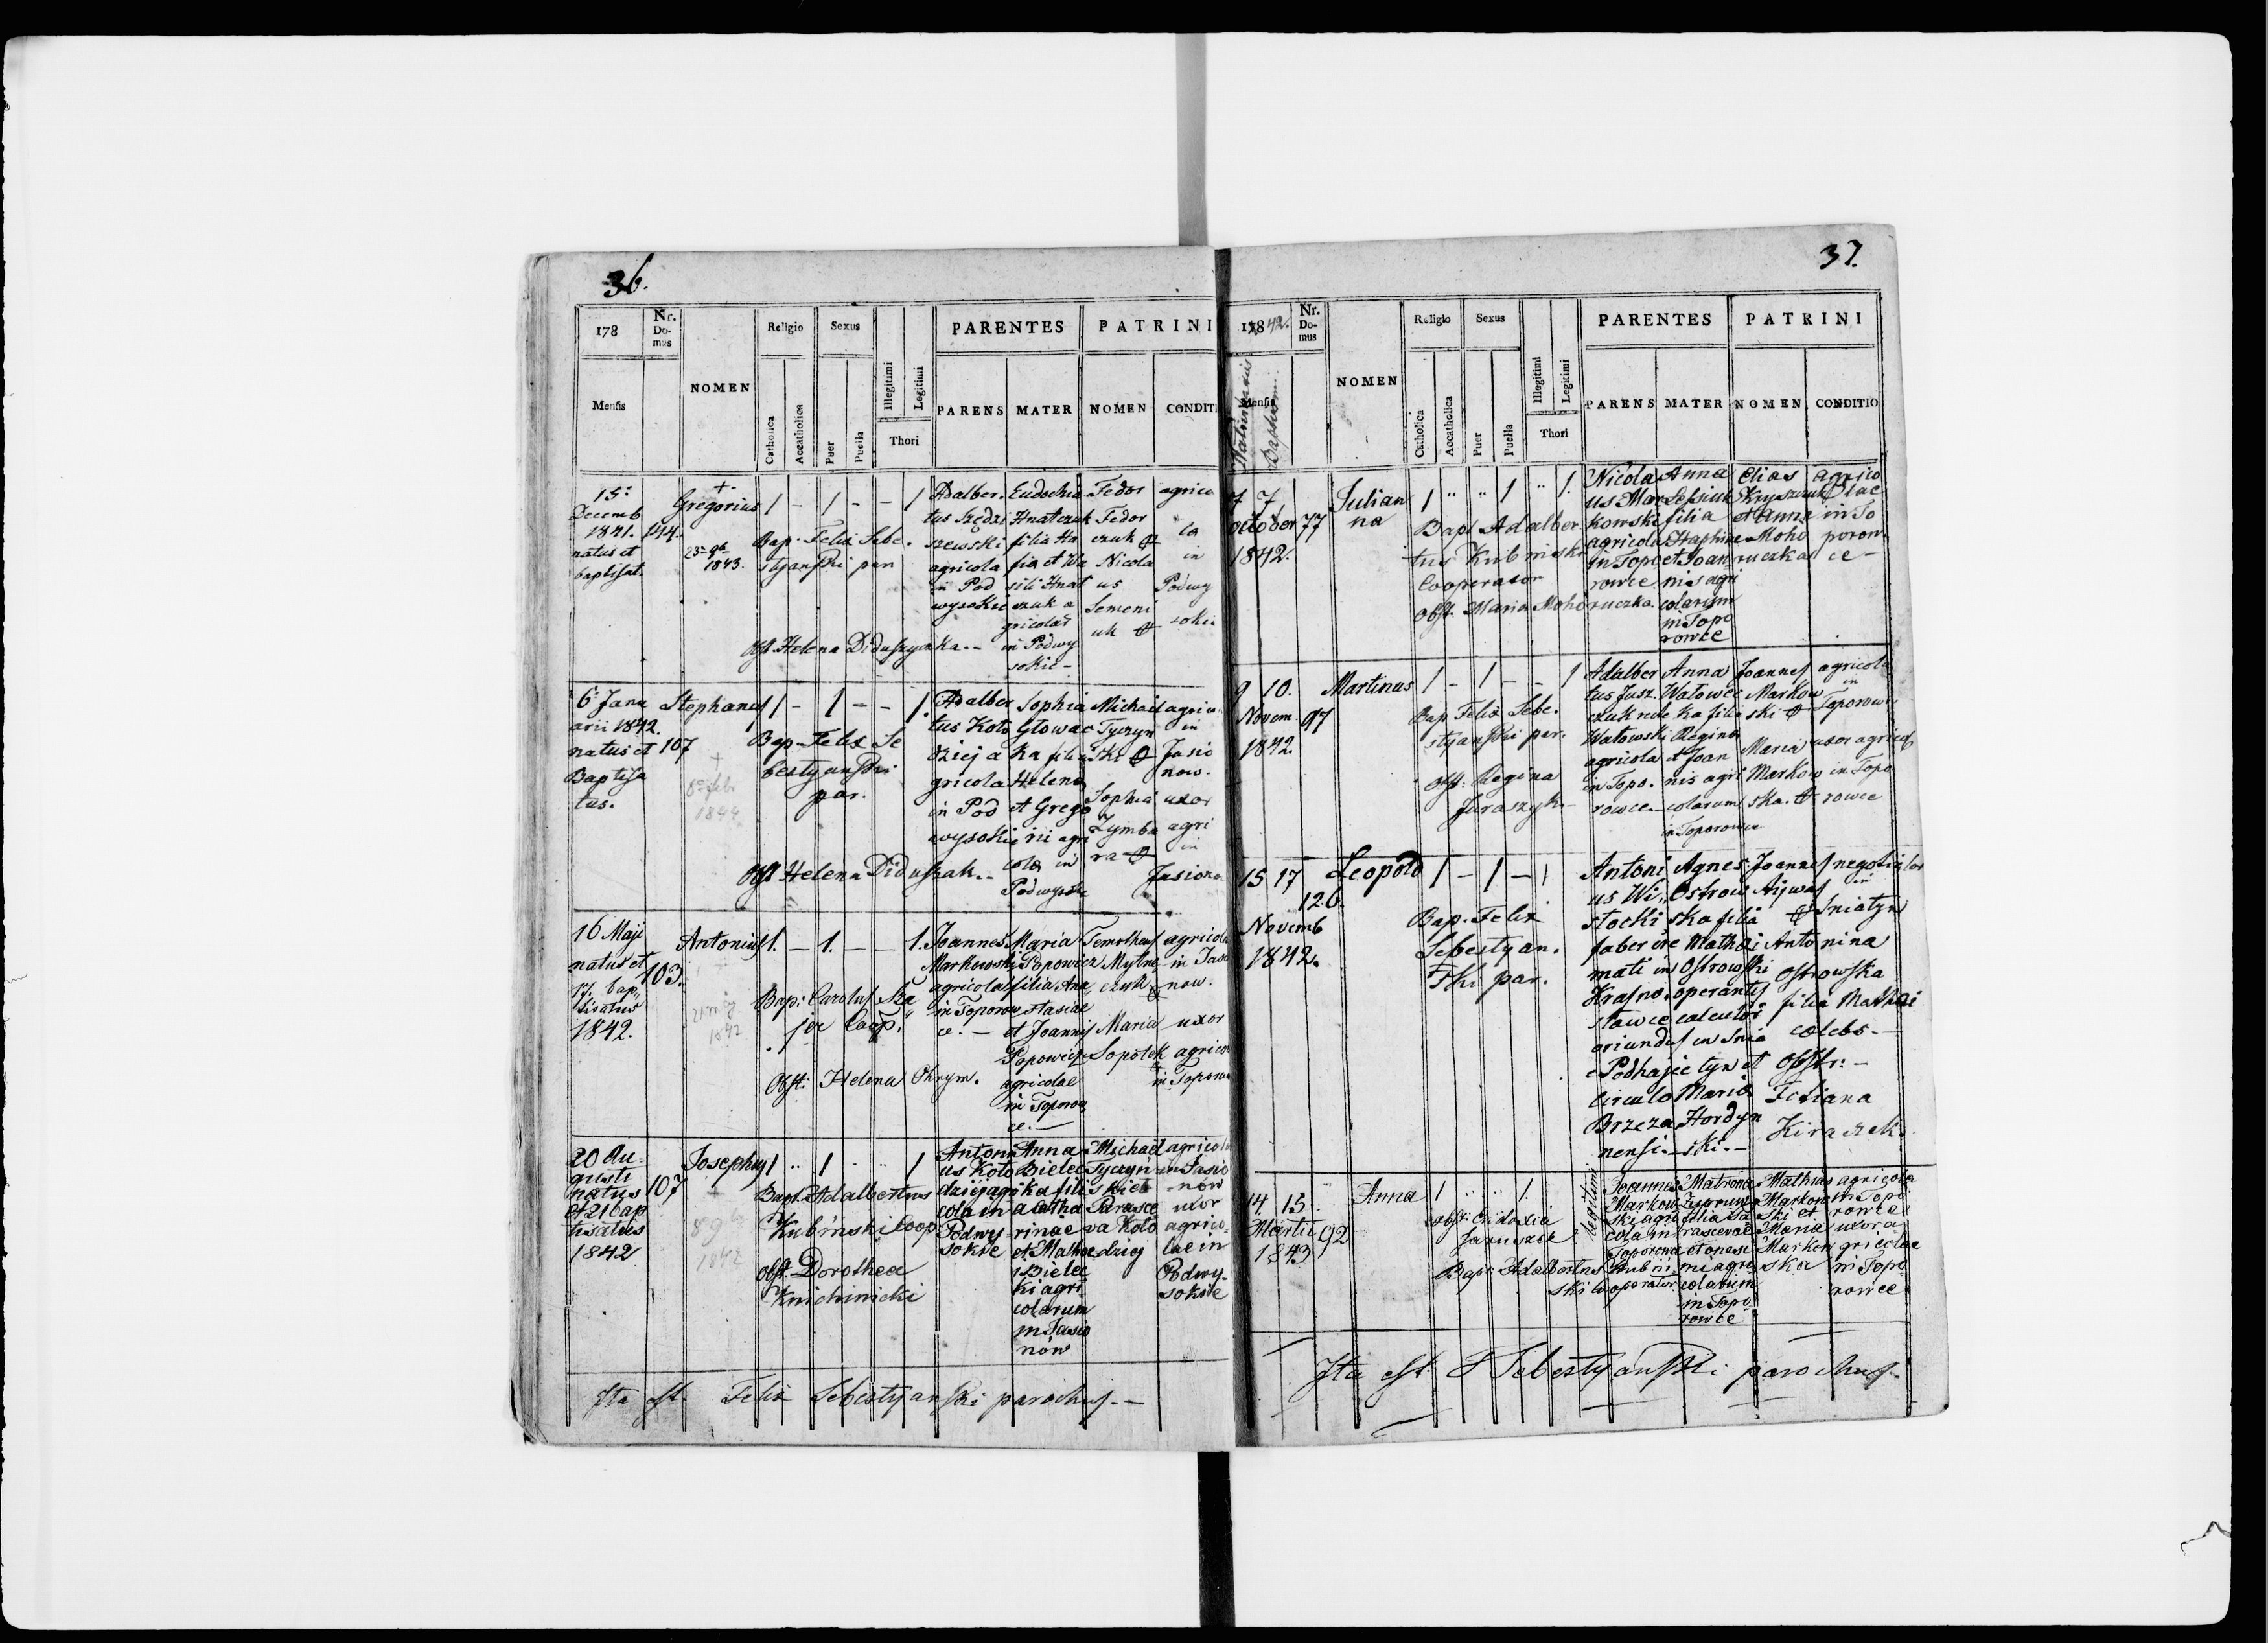 36.
178
Nr.
Do-
mus
Mensis
NOMEN
Religio
Sexus
Catholica
Accatholica
Puer
Puella
Illegitimi
Legitimi
Thori
PARENTES
PATRINI
PARENS
MATER
NOMEN
CONDITI
15
Decemb
1841.
natus et
baptisat.
144.
Gregorius
1 - 1 - - 1
1843.
Bap. Felix Sebe.
styanski par
Obst Helena Diduszycka.-
Adalber.
tus Szędzi
szewski
agricola
in Pod
wysokie
Eudochia
Hnatczuk
filia Ha
fia et Wa
sili Hnat
czuk a
gricolar
in Podwy
sokie-
Fedor
Fedor
czuk
Nicola
us
Semeni
uk
agrico
la
in
Podwy
sokie
6 Janu
arii 1842.
natus et
Baptisa
tus.
107
Stephanus
1 - 1 - - 1.
8 Feb
1844
Bap. Felix Se
bestyanski
par.
Obst Helena Diduszak.-
Adalber
tus Koło
dziej a
gricola
in Pod
wysokie
Sophia
Głowac
ka filia
Helena
et Grego
rii agri
cola in
Podwysok
Michael
Tyczyn
ski
Sophia
Zymba
ra
agrico
in
Jasio
now.
uxor
agri
in
Jasiono
16 Maji
natus et
17. bap
tisatus
1842.
103.
Antonius
1. - 1. - - 1.
1842
Bap. Carolus
Coop.
Obst. Helena Okrym.
Joannes
Markowski
agricola
in Toporow
ce.-
Maria
Popowicz
filia Ana
stasiae
et Joannis
Popowicz
agricolae
in Toporow
ce.-
Timotheus
Mytne
czuk
Maria
Sopolek
agricola
in Jasi
now.
uxor
agrico
in Toporow
20 Au-
gusti
natus
et 21 bap
tisatus
1842
107
Josephus
1 " 1 1
1842
Bapt. Adalbertus
Kubinski Coop
Obst. Dorothea
Knihinicki
Antoni
us Koło
dziej agri
cola in
Podwy
sokie
Anna
Bielec
ka fili
a Catha
rinae
et Mathae
i Bielec
ki agri
colarum
in Jasio
nów
Michael
Tyczyń
ski et
Parasce
va Koło
dziej
agricola
in Jasio
now
uxor
agrico
lae in
Podwy-
sokie
Ita est. Felix Sebestyanski parochus.-
37.
1842.
Nr.
Do-
mus
Mensis
Baptism
NOMEN
Religio
Sexus
Catholica
Accatholica
Puer
Puella
Illegitimi
Legitimi
Thori
PARENTES
PATRINI
PARENS
MATER
NOMEN
CONDITIO
7 7
October
1842.
77
Julian
na
1 " " 1 " 1.
Bapt Adalber
tus Kubinski
Cooperator
Obst. Maria Mohoruczka.
Nicola
us Mar
kowski
agricola
in Topo
rowce.
Anna
filia
et Joan
nis agri
colarum
in Topo
rowce
Elias
et Anna
Moho
ruczka
agrico
lae
in To
porow
ce-
9 10.
Novem.
1842.
97
Martinus
1 - 1 - - 1
Bap. Felix Sebe.
styanski par.
Obst. Regina
Juraszyk.-
Adalber
tus Jusz.
czuk recte
Watowski
agricola
in Topo.
rowce.-
Anna
Watowc
ka filia
Regina
et Joan
nis agri
colarum
in Toporowce
Joannes
Markow
ski
Maria
Markow
ska.
agricola
in
Toporowc
uxor agricol
in Topo
rowce
15 17
Novemb
1842.
126.
Leopold
1 - 1 - 1
Bap. Felix
Sebestyan.
ski par.
Antoni
us Wi.
stocki
faber
in
Krasno
stawce
oriundus
e Podhajce
circulo
Brzeza
nensi.-
Agnes
Ostrow
ska filia
Mathei
Ostrowski
operantis
in Snia
tyn et
Maria
Hordyn
ski.-
Joannes
Antonina
Ostrowska
filia Mathei
coelebs.-
Obstr:-
Tetiana
Kiraszek.
negotiator
in
Sniatyn
14. 15.
Martii
1843
92
Anna
1 " " 1.
Legitimi
Obst: Eudoxia
Bapt: Adalbertus Kubin
ski Cooperator.
Joannes
Markow
ski agri
cola in
Toporow
Matrona
filia Pa
rascevae
et Onesi
mi agri
colarum
in Topo
rowce
Mathias
Markow
ski et
Maria
Markow
ska
agricola
in Topo
rowce
uxor a
gricolae
in Topo
rowce
Ita est F Sebestyanski parochus.-